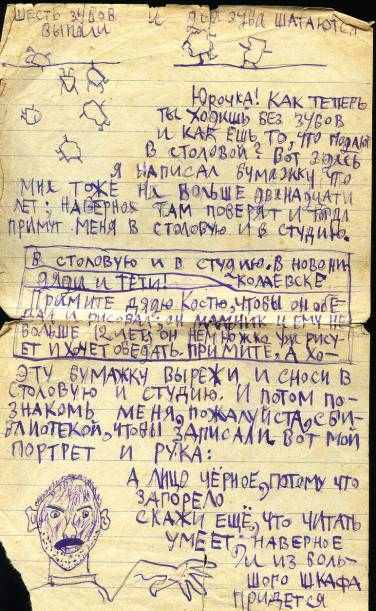 ШЕСТЬ ЗУБОВ И ДВА ЗУБА ШАТАЮТСЯ
ВЫПАЛИ
ЮРОЧКА! КАК ТЕПЕРЬ
ТЫ ХОДИШЬ БЕЗ ЗУБОВ
И КАК ЕШЬ ТО, ЧТО ПОДАЮТ
В СТОЛОВОЙ? ВОТ ЗДЕСЬ
Я НАПИСАЛ БУМАЖКУ, ЧТО
МНЕ ТОЖЕ НЕ БОЛЬШЕ ДВЕНАДЦАТИ
ЛЕТ; НАВЕРНОЕ ТАМ ПОВЕРЯТ И ТОГДА
ПРИМУТ МЕНЯ В СТОЛОВУЮ И В СТУДИЮ.
В СТОЛОВУЮ И В СТУДИЮ. В НОВОНИ
ДЯДИ И ТЁТИ! КОЛАЕВСКЕ
ПРИМИТЕ ДЯДЮ КОСТЮ, ЧТОБЫ ОН ОБЕ
ДАЛ И РИСОВАЛ; ОН МАЛЬЧИК И ЕМУ НЕ
БОЛЬШЕ 12 ЛЕТ; ОН НЕМНОЖКО УЖЕ РИСУ
ЕТ И ХОЧЕТ ОБЕДАТЬ. ПРИМИТЕ, А ХО-
ЭТУ БУМАЖКУ ВЫРЕЖИ И СНОСИ В
СТОЛОВУЮ И СТУДИЮ. И ПОТОМ ПО-
ЗНАКОМЬ МЕНЯ, ПОЖАЛУЙСТА, С БИ-
БЛИОТЕКОЙ, ЧТОБЫ ЗАПИСАЛИ. ВОТ МОЙ
ПОРТРЕТ И РУКА:
А ЛИЦО ЧЁРНОЕ, ПОТОМУ ЧТО
ЗАГОРЕЛО
СКАЖИ ЕЩЁ, ЧТО ЧИТАТЬ
УМЕЕТ; НАВЕРНОЕ
И ИЗ БОЛЬ-
ШОГО ШКАФА
ПРИДЕТСЯ